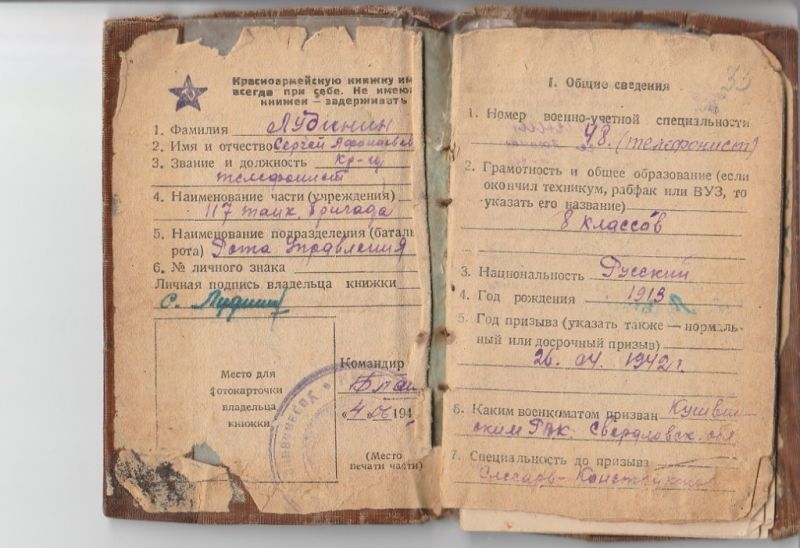 Красноармейскую книжку им
всегда при себе. Не имею
книжек — задерживать
1. Фамилия Лудинин
2. Имя и отчество Сергей Афонасьев
3. Звание и должность кр-ц
телефонист
4. Наименование части (учреждения)
117 танк. бригада
5. Наименование подразделения (баталь
рота) Рота Управления
6. № личного знака
Личная подпись владельца книжки
С.
Место для
фотокарточки
владельца
книжки
Командир
«4» 06 194
(Место
печати части)
33
I. Общие сведения
1. Номер военно-учетной специальности
(телефонист)
2. Грамотность и общее образование (если
окончил техникум, рабфак или ВУЗ, то
указать его название)
8 классов
3. Национальность Русский
4. Год рождения 1913
5. Год призыва (указать также — нормаль-
ный или досрочный призыв)
26. 04. 1942 г.
6. Каким военкоматом призван Кушвин-
ским РВК Свердловск. обл.
7. Специальность до призыва
Слесарь-